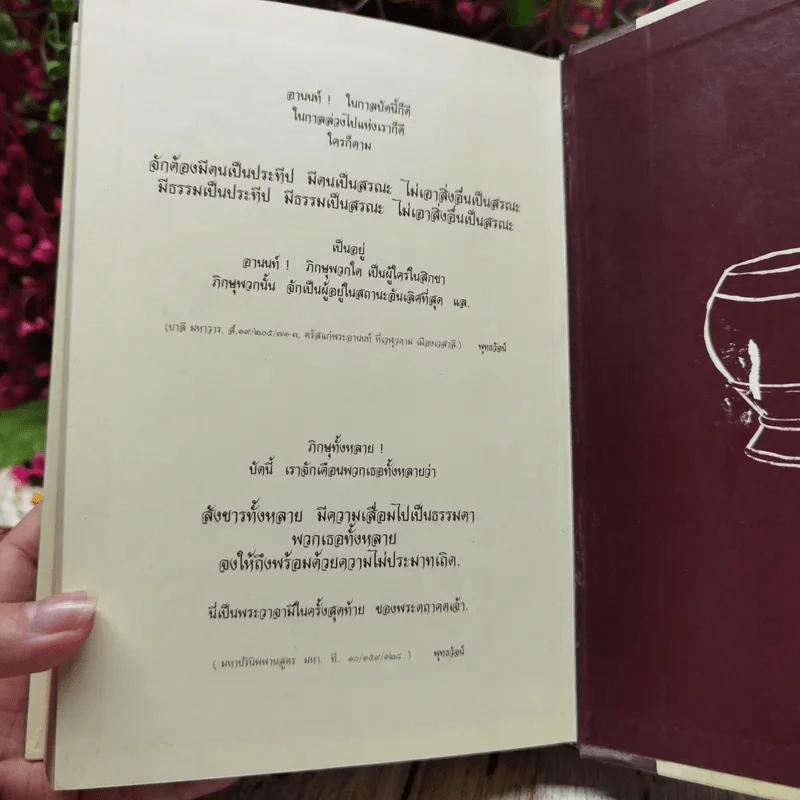 อานนท์ !   ในกาลบัดนี้ก็ดี
ในกาลล่วงไปแห่งเราก็ดี
ใครก็ตาม
จักต้องมีตนเป็นประทีป  มีตนเป็นสรณะ  ไม่เอาสิ่งอื่นเป็นสรณะ
มีธรรมเป็นประทีป  มีธรรมเป็นสรณะ  ไม่เอาสิ่งอื่นเป็นสรณะ
เป็นอยู่
อานนท์ !   ภิกษุพวกใด เป็นผู้ใคร่ในสิกขา
ภิกษุพวกนั้น  จักเป็นผู้อยู่ในสถานะอันเลิศที่สุด  แล.
(บาลี มหาวาร. สํ.๑๙/๒๐๕/๗๑๑-๓, ตรัสแก่พระอานนท์ ที่เวฬุวคาม เมืองเวสาลี.)   พุทธวัจน์
ภิกษุทั้งหลาย !
บัดนี้  เราจักเตือนพวกเธอทั้งหลายว่า
สังขารทั้งหลาย  มีความเสื่อมไปเป็นธรรมดา
พวกเธอทั้งหลาย
จงให้ถึงพร้อมด้วยความไม่ประมาทเถิด.
นี่เป็นพระวาจามีในครั้งสุดท้าย  ของพระตถาคตเจ้า.
( มหาปรินิพพานสูตร  มหา.  ที.  ๑๐/๑๕๙/๑๒๘. )     พุทธวัจน์